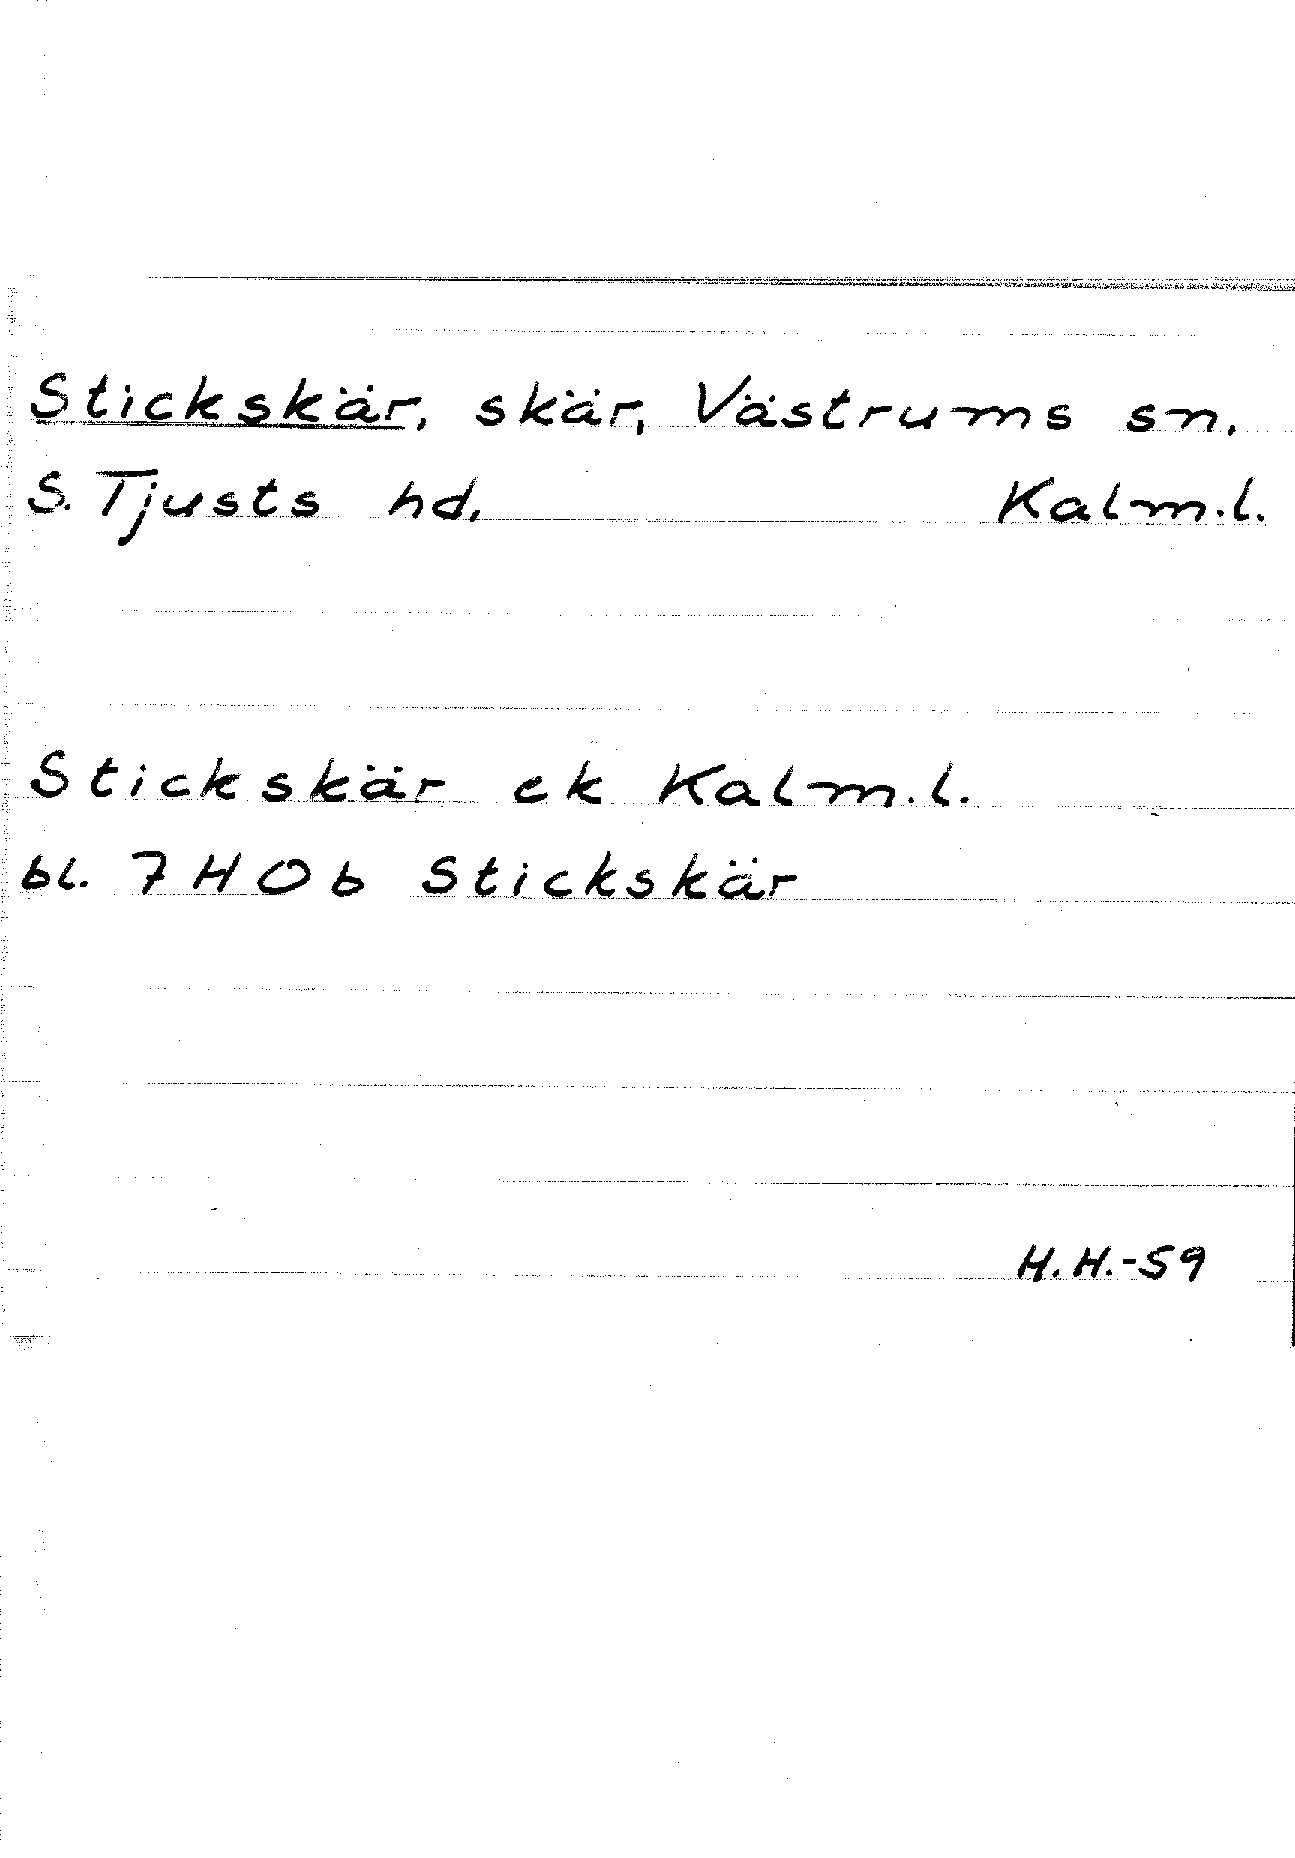 Stickskär, skär, Västrums sn.
S. Tjusts hd. Kalm.l.
Stickskär ek Kalm.l.
bl. 7 H O b Stickskär
H.H.-59